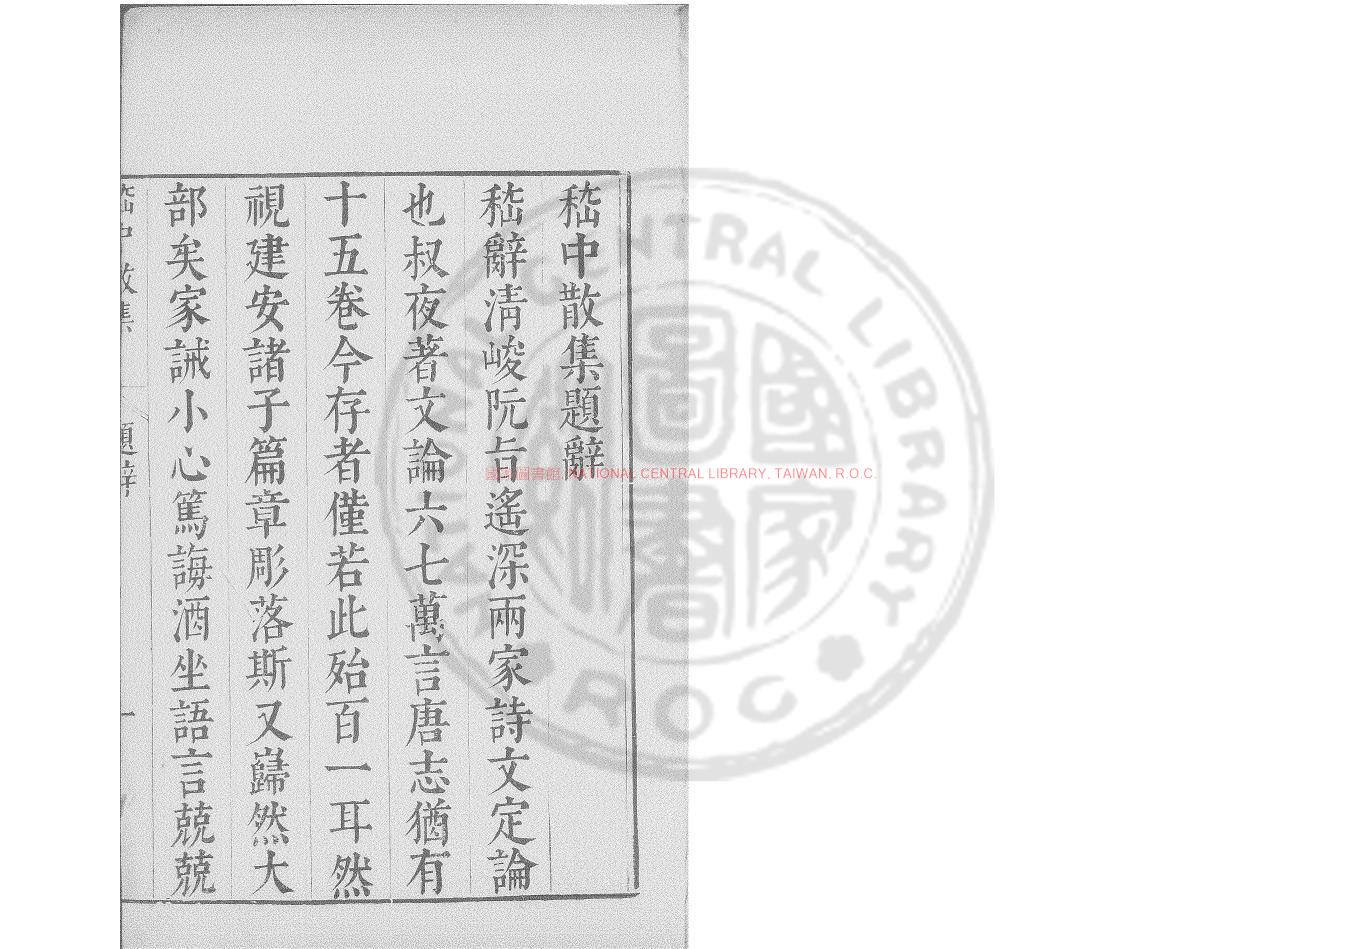 嵇中散集題辭
嵇辭清峻阮旨遙深兩家詩文定論
也叔夜著文論六七萬言唐志猶有
十五卷今存者僅若此殆百一耳然
視建安諸子篇章彫落斯又巋然大
部矣家誡小心篤誨酒坐語言兢兢
嵇中散集
題辭
一
國家圖書館, NATIONAL CENTRAL LIBRARY, TAIWAN, R.O.C.
NATIONAL CENTRAL LIBRARY
R.O.C.
國家圖書館